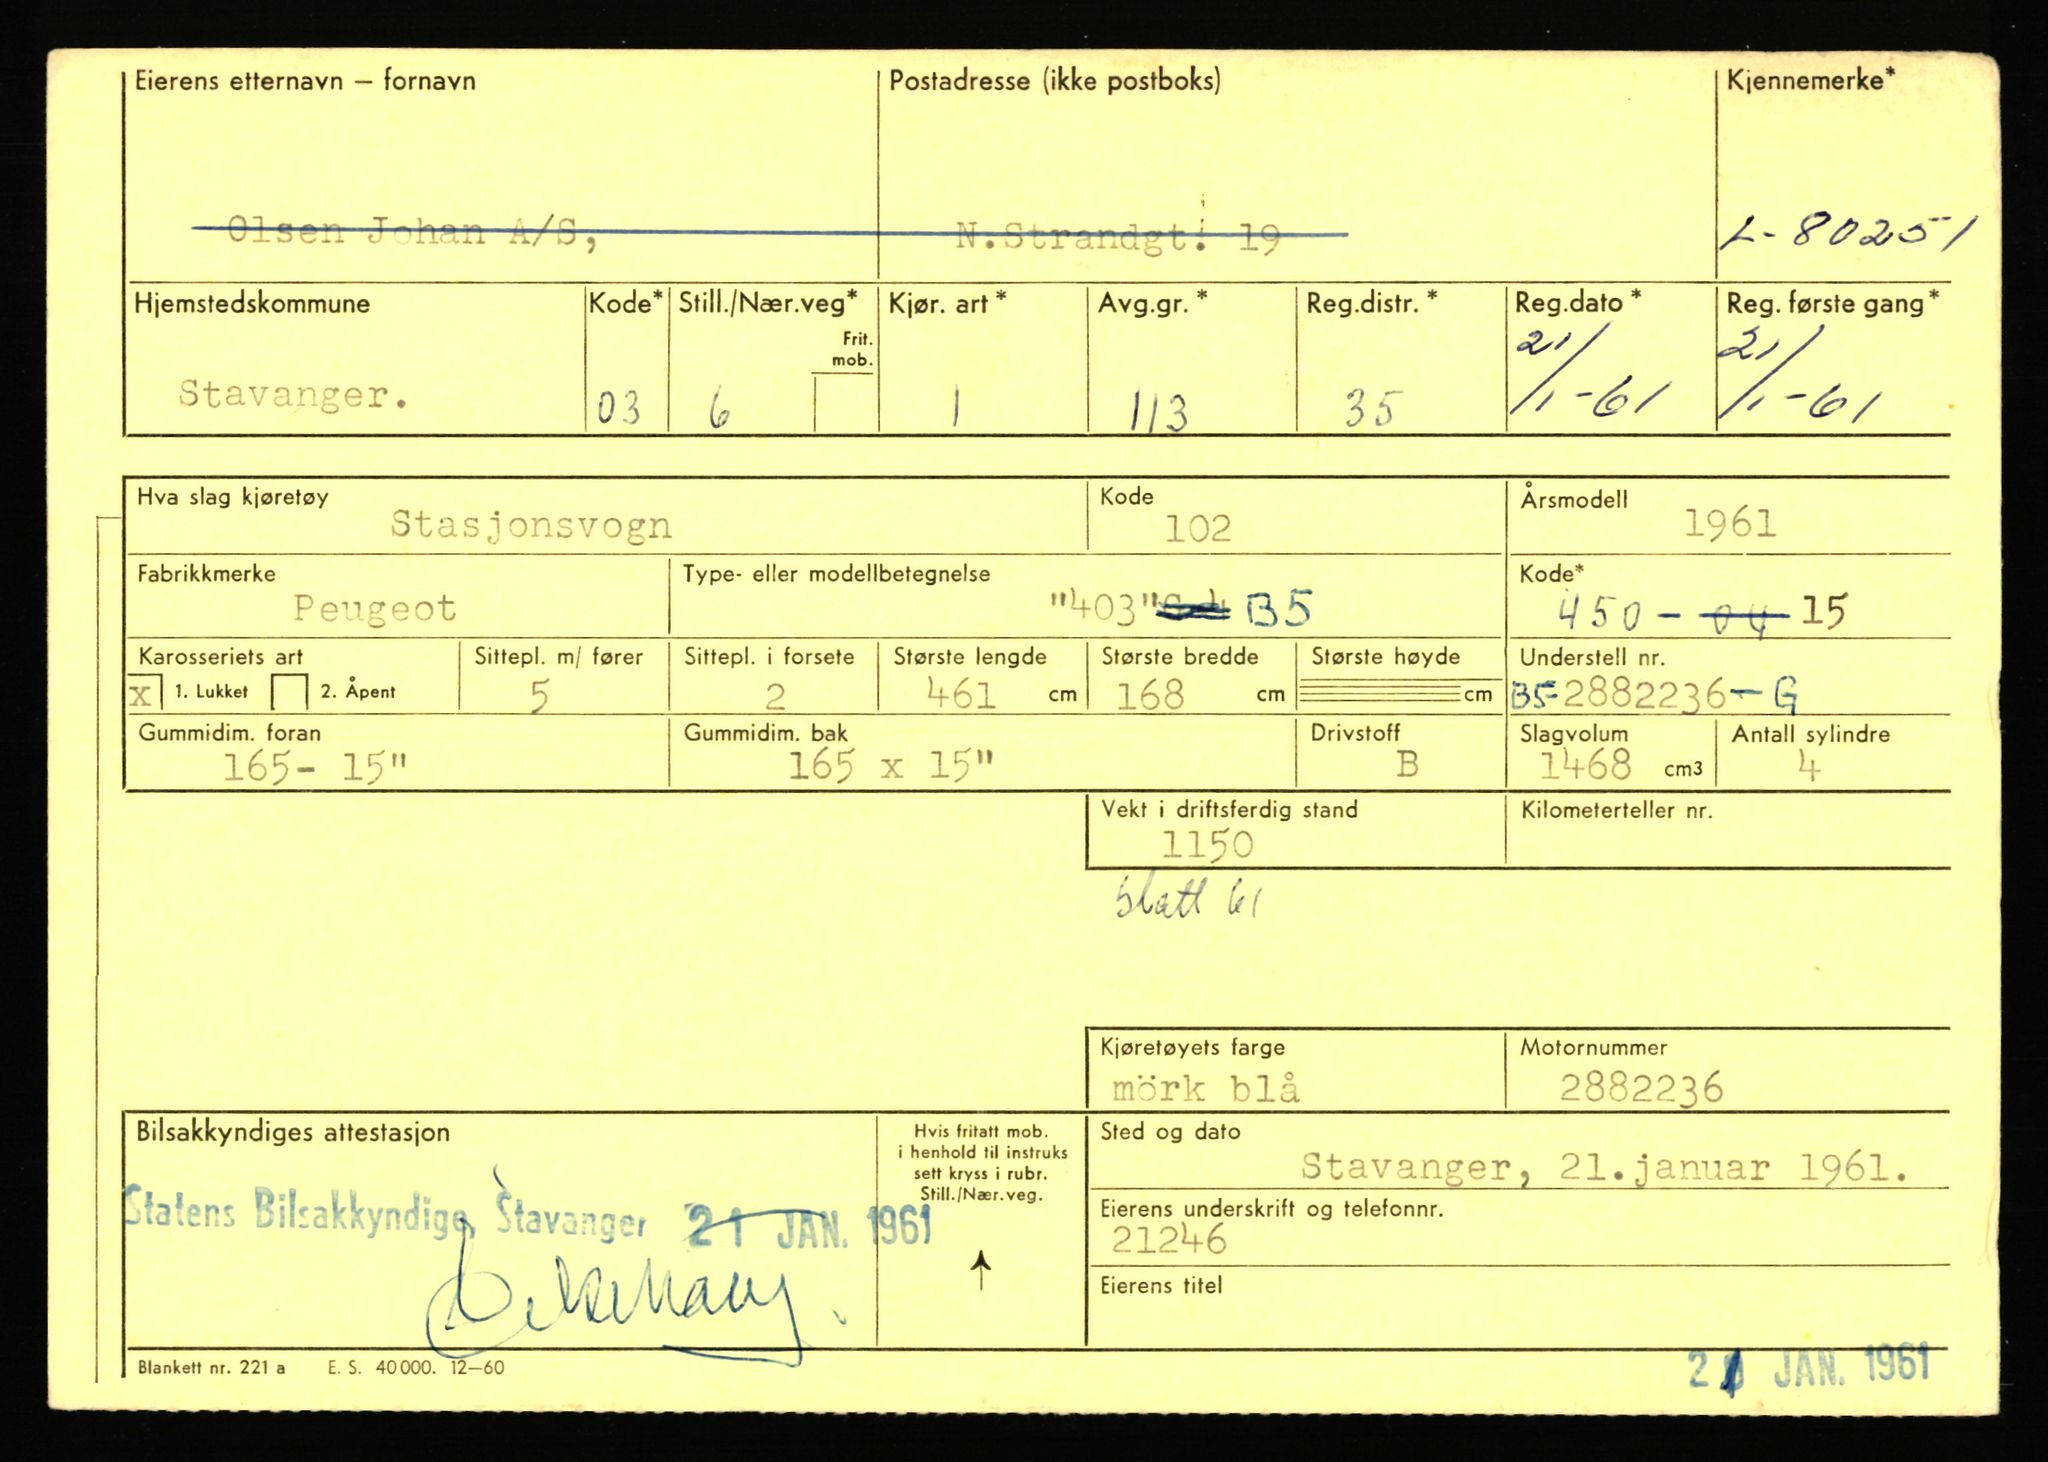 Eierens etternavn – fornavn Postadresse (ikke postboks) Kjennemerke*
Olsen Johan A/S, N.Strandgt. 19 L-80251
Hjemstedskommune Kode* Still./Nær.veg* Kjør. art* Avg.gr.* Reg.distr.* Reg.dato* Reg. første gang*
Frit.
mob.
Stavanger. 03 6 1 113 35 21/1-61 21/1-61
Hva slag kjøretøy Kode Årsmodell
Stasjonsvogn 102 1961
Fabrikkmerke Type- eller modellbetegnelse Kode*
Peugeot "403" B5 450 - 04 15
Karosseriets art Sittepl. m/ fører Sittepl. i forsete Største lengde Største bredde Største høyde Understell nr.
x 1. Lukket 2. Åpent 5 2 461 cm 168 cm cm B5-2882236-G
Gummidim. foran Gummidim. bak Drivstoff Slagvolum Antall sylindre
165- 15" 165 x 15" B 1468 cm3 4
Vekt i driftsferdig stand Kilometerteller nr.
1150
slatt 61
Kjøretøyets farge Motornummer
mörk blå 2882236
Bilsakkyndiges attestasjon Hvis fritatt mob. Sted og dato
i henhold til instruks
sett kryss i rubr.
Still./Nær.veg.
Stavanger, 21.januar 1961.
Statens Bilsakkyndige, Stavanger 21 JAN. 1961
Eierens underskrift og telefonnr.
21246
Eierens titel
Blankett nr. 221 a E. S. 40000. 12–60
21 JAN. 1961